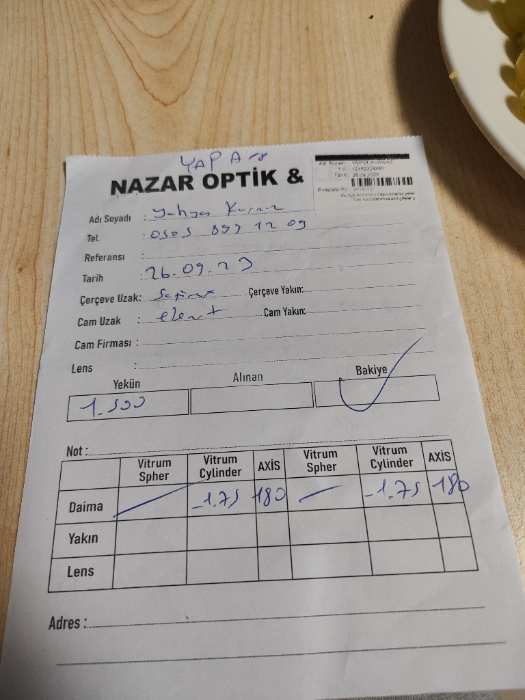 YAPA
NAZAR OPTİK &
Adı Seyadı :
Tel. : 0505 897 12 09
Referansı :
Tarih 26.09.23
Çerçeve Uzak: Çerçeve Yakın:
Cam Uzak : Cam Yakın:
Cam Firması :
Lens :
Yekün Alınan Bakiye
1.500
Not :
Vitrum Spher Vitrum Cylinder AXİS Vitrum Spher Vitrum Cylinder AXİS
Daima -1.75 180 -1.75 180
Yakın
Lens
Adres :